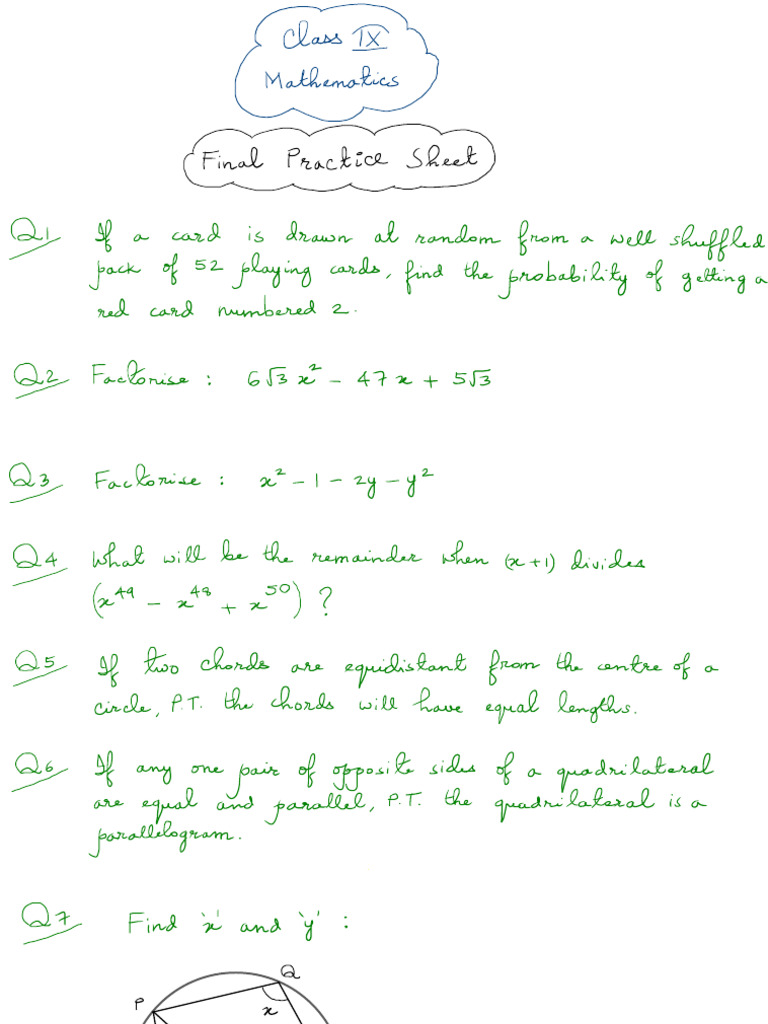 Class IX
Mathematics
Final Practice Sheet
Q1 If a card is drawn at random from a well shuffled
pack of 52 playing cards, find the probability of getting a
red card numbered 2.
Q2 Factorise : 6√3 x² - 47x + 5√3
Q3 Factorise : x² - 1 - 2y - y²
Q4 What will be the remainder when (x+1) divides
(x⁴⁹ - x⁴⁸ + x⁵⁰) ?
Q5 If two chords are equidistant from the centre of a
circle, P.T. the chords will have equal lengths.
Q6 If any one pair of opposite sides of a quadrilateral
are equal and parallel, P.T. the quadrilateral is a
parallelogram.
Q7 Find 'x' and 'y' :
Q
P
x